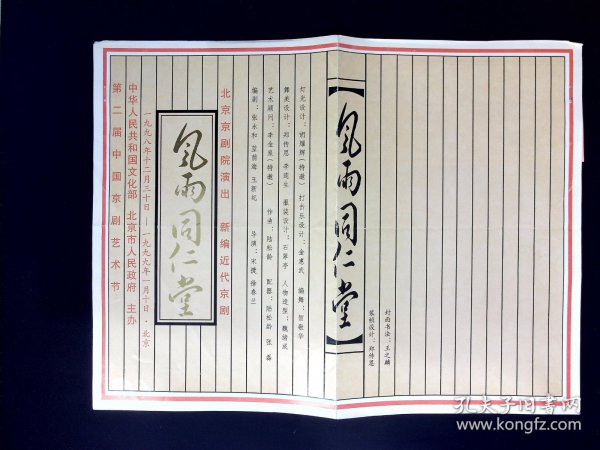 【风雨同仁堂】
封面书法：王之鏻
装帧设计：郑传恩
灯光设计：胡耀辉（特邀） 打击乐设计：金惠武 编舞：贺敬华
舞美设计：郑传恩 李连生 服装设计：石翠亭 人物造型：魏绪成
艺术顾问：李金泉（特邀） 作曲：陆松龄 配器：陆松龄 张磊
编剧：张永和 王新纪 导演：宋捷 徐春兰
北京京剧院演出 新编近代京剧
风雨同仁堂
一九九八年十二月三十日—一九九九年一月十日·北京
中华人民共和国文化部 北京市人民政府 主办
第二届中国京剧艺术节
孔夫子旧书网
www.kongfz.com